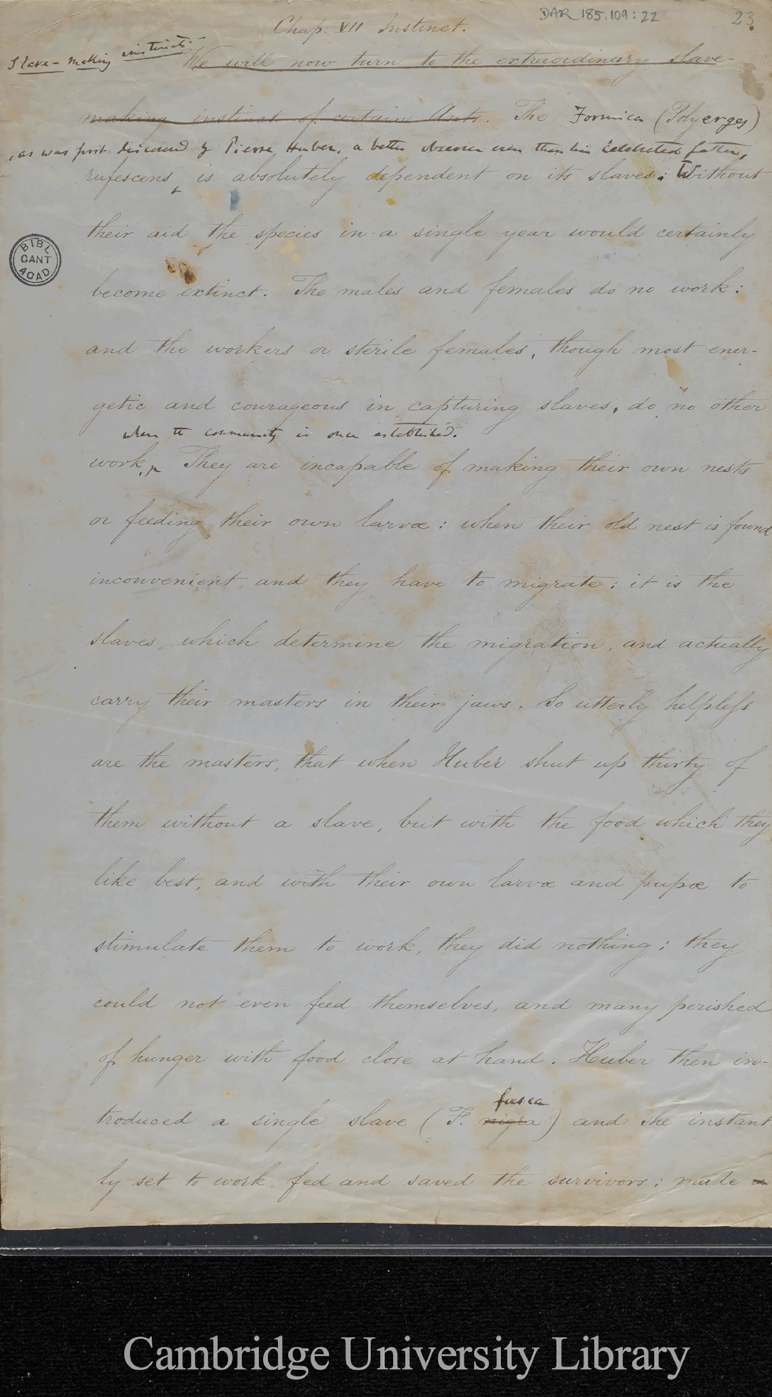 DAR 185.109:22
23
Chap: VII Instinct.
Slave-making instinct:-
We will now turn to the extraordinary slave-
making instinct of certain Ants. The Formica (Polyerges)
, as was first discovered by Pierre Huber, a better observer even than his celebrated father,
rufescens, is absolutely dependent on its slaves. Without
their aid the species in a single year would certainly
become extinct. The males and females do no work:
and the workers or sterile females, though most ener-
getic and courageous in capturing slaves, do no other
when the community is once established.
work. They are incapable of making their own nests
or feeding their own larvæ: when their old nest is found
inconvenient, and they have to migrate; it is the
slaves which determine the migration, and actually
carry their masters in their jaws. So utterly helpless
are the masters, that when Huber shut up thirty of
them without a slave, but with the food which they
like best, and with their own larvæ and pupæ to
stimulate them to work, they did nothing; they
could not even feed themselves, and many perished
of hunger with food close at hand. Huber then in-
fusca
troduced a single slave (F. nigra) and she instant
ly set to work, fed and saved the survivors; made
BIBL
CANT
ACAD
Cambridge University Library